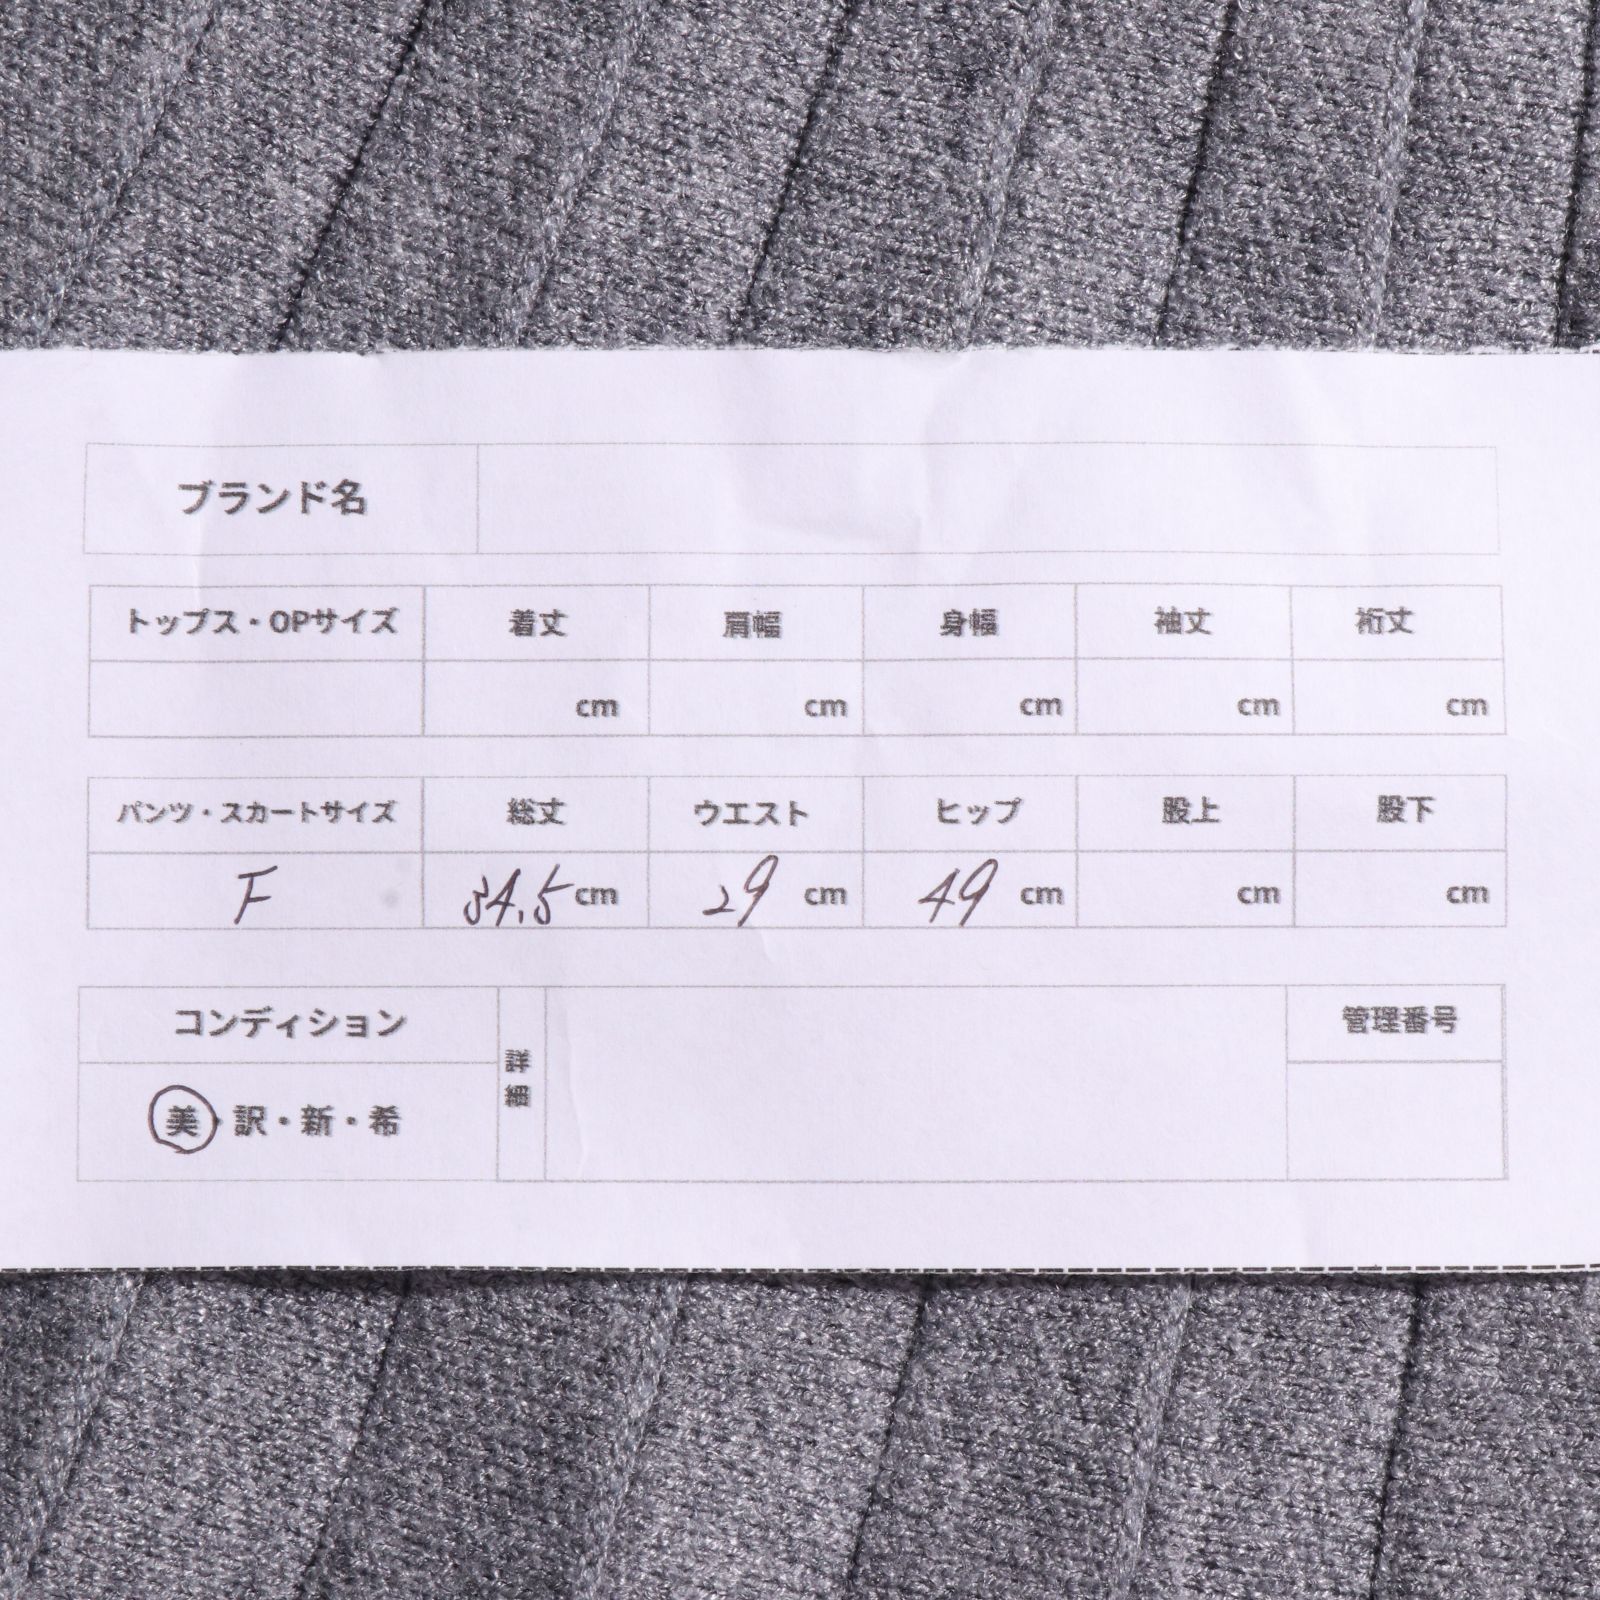 ブランド名
トップス・OPサイズ 着丈 肩幅 身幅 袖丈 裄丈
cm cm cm cm cm
パンツ・スカートサイズ 総丈 ウエスト ヒップ 股上 股下
F 34.5cm 29 cm 49 cm cm cm
コンディション 詳細 管理番号
美・訳・新・希